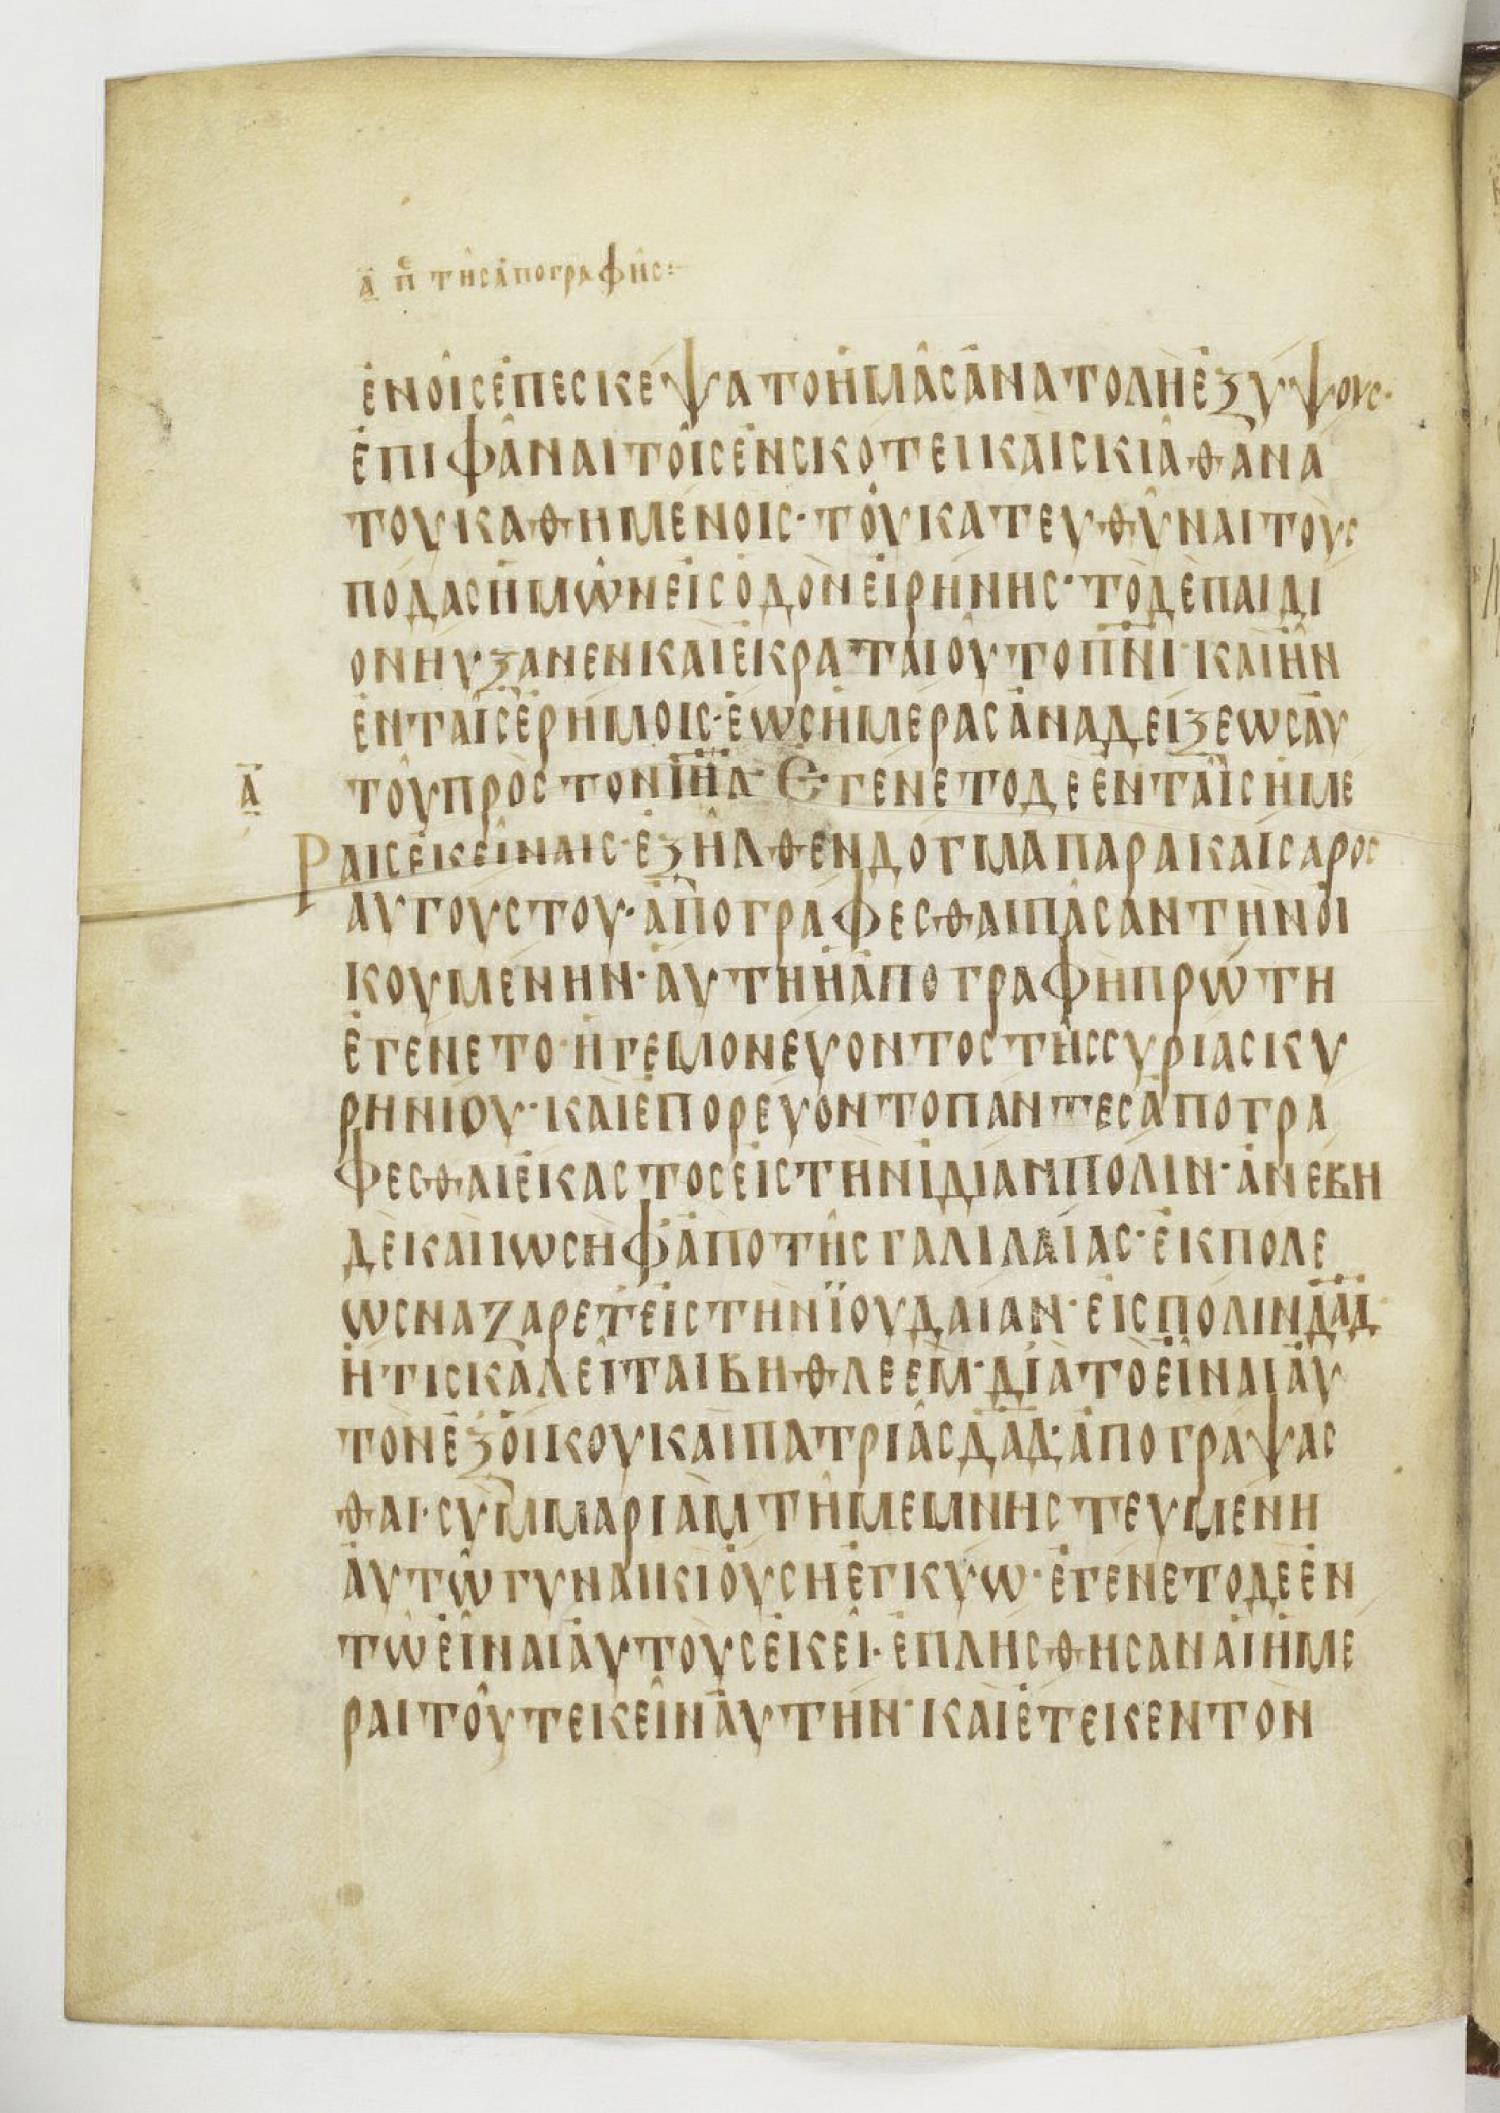 α π̅ͨ τῆσἀπογραφῆς:
ἐνοἷσἐπεσκεψατοἡμᾶσἀνατολὴἐξυψους·
ἐπιφᾶναιτοῖσἐνσκοτεικαισκιᾶθανα
τουκαθημένοις· τοῦκατευθῦναιτους
πόδασἡμῶνεἰσὁδὸνεἰρήνης· τὸδὲπαιδι
ονηυξανενκαιἐκραταιοῦτοπ̅ν̅ι̅· καιἦν
ἐνταῖσἐρήμοις· ἑωσἡμέρασἀναδείξεωσἀυ
τοῦπρὸστονι̅η̅λ̅· Ἐ·γένετοδεἐνταῖσἡμε
α̅
Ραισἐκεῖναις· ἐξῆλθενδογμαπαρακαισαρος
αυγουστου· ἀπογράφεσθαιπᾶσαντὴνοἰ
κουμένην· ἁυτηἡἀπογραφὴπρώτη
ἐγένετο· ἡγεμονευοντοστῆσσυρίασκυ
ρηνιου· καιἐπορέυοντοπαντεσἀπογρα
φεσθαιἑκαστοσεἰστηνἰδίανπολιν· ἀνεβη
δὲκαιιωσὴφἀποτῆσγαλιλαίας· ἐκπολε
ωσναζαρετεἰστὴνϊουδαιαν· εἰσπολινδ̅α̅δ̅
ἥτισκαλεῖταιβηθλεεμ· διατὸεἶναιἀυ
τὸνἐξοἴκουκαιπατριᾶσδ̅α̅δ̅· ἀπογραψας
θαι· συμμαριὰμτῆμεμνηστευμένη
ἀυτῶγυναικιὀυσηἐγκυω· ἐγένετοδεἐν
τῶεἶναιἀυτοὺσἐκεῖ· ἐπλησθησαναἱἡμε
ραιτοῦτεκεῖνἀυτήν· καιἐτεκεντὸν